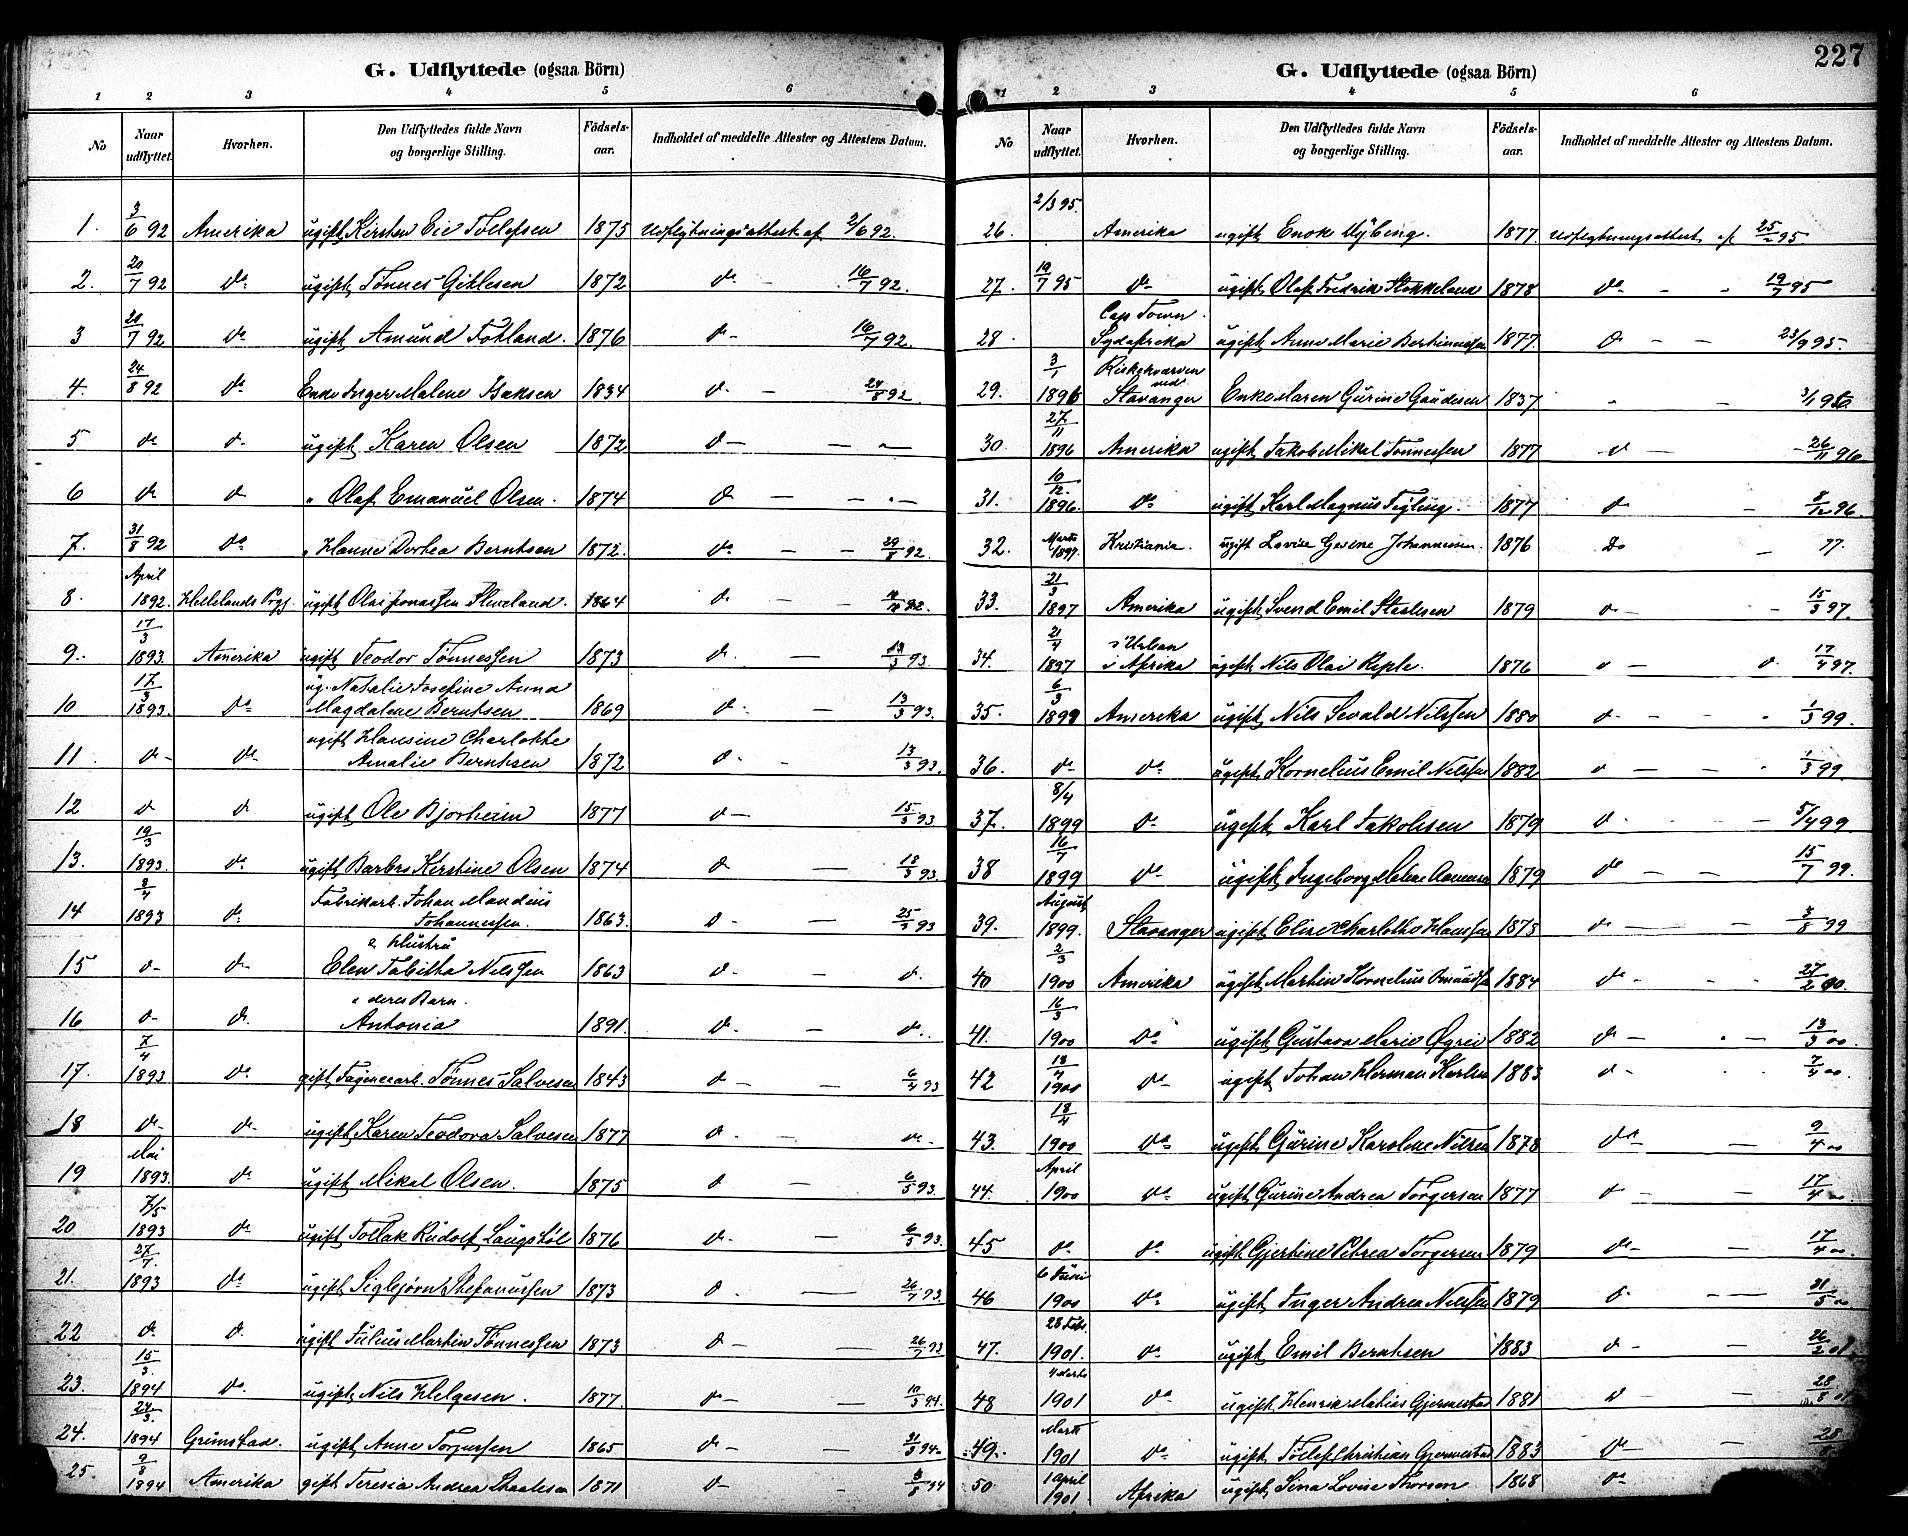 227
G. Udflyttede (ogsaa Börn)
1 2 3 4 5 6
No Naar udflyttet. Hvorhen. Den Udflyttedes fulde Navn og borgerlige Stilling. Födsels-aar. Indholdet af meddelte Attester og Attestens Datum.
1. 3/6 92 Amerika ugift Kirsten Eie Tollefsen 1875 Udflytningsattest af 2/6 92.
2. 20/7 92 do ugift Tønnes Giklesen 1872 do - 16/7 92.
3 20/7 92 do ugift Amund Fotland. 1876 do - 16/7 92.
4. 24/8 92 do Enke Inger Malene Isaksen 1834 do - 24/8 92.
5 do do ugift Karen Olsen 1872 do - -
6 do do " Olaf Emanuel Olsen. 1874 do - -
7. 31/8 92 do " Hanne Dorthea Berntsen 1872. do - - 29/8 92
8. April 1892. Hellelands Prgj. ugift Olai Jonassen 1864 do - - 92.
9. 17/3 1893. Amerika ugift Teodor Tønnessen 1873 do - 13/3 93.
10 17/3 1893. do ug. Natalie Josefine Anna
Magdalene Berntsen 1869 do - 13/3 93.
11 do do ugift Hansine Charlotte
Amalie Berntsen 1872 do - 13/3 93.
12 do do ugift Ole Bjorheim 1877 do - 15/3 93
13. 19/3 1893. do ugift Barbro Kirstine Olsen 1874 do - 18/3 93.
14 2/4 1893 do Fabrikarb. Johan Mandius
Johannessen. 1863. do - 25/3 93
15 do do & Hustru
Elen Tabitha Nilssen 1863 do - do
16 do do & deres Barn.
Antonia 1891. do - do
17. 7/4 1893 do gift Tønnes Salvesen 1843 do - 6/4 93
18 do do ugift Karen Teodora Salvesen 1877 do - do
19 Mai 1893. do ugift Mikal Olsen. 1875 do - 6/5 93.
20 7/5 1893 do ugift Tollak Rudolf Laugshol 1876 do - 6/5 93.
21. 27/7. 1893 do ugift Sigbjørn Stefanussen 1873 do - 26/7 93.
22 do do ugift Julius Martin Tønnessen 1873 do - 26/7 93
23. 15/3. 1894 do ugift Nils Helgesen. 1877. do - 10/3 94.
24. 24/3. 1894 Grimstad. ugift Anne Torjussen 1865 do - 21/3 94
25. 9/8 1894 Amerika gift Teresia Andrea Staalesen 1871 do - 8/8 94
G. Udflyttede (ogsaa Börn)
1 2 3 4 5 6
No Naar udflyttet. Hvorhen. Den Udflyttedes fulde Navn og borgerlige Stilling. Födsels-aar. Indholdet af meddelte Attester og Attestens Datum.
26. 2/3 95. Amerika ugift Enok Nybing. 1877. Udflytningsattest af 25/2 95
27. 19/7 95 do ugift Olaf Fredrik Stokkeland 1878 do - - 19/7 95
28. Cap Town.
Sydafrika ugift Anne Marie Bertinussen 1877 do - - 23/9 95.
29. 3/1 1896 Kirkekvarven
ved
Stavanger Enke Maren Gurine Gaudesen 1837 " - 3/1 96
30. 27/11 1896 Amerika ugift Jakob Mikal Tønnessen 1877 do - 26/11 96
31. 10/12. 1896. do ugift Karl Magnus Tegling. 1877 do - 8/12 96.
32. Marts 1897. Kristiania. ugift Lovise Gerine Johannessen 1876 Do - 97.
33. 21/3 1897 Amerika ugift Svend Emil Staalesen 1879 do - - 15/3 97.
34. 21/4 1897 i Urban
i Afrika ugift Nils Olai Reple. 1876 do - do 17/4 97.
35. 6/3 1899 Amerika ugift Nils Sevald Nilssen 1880 do - - 1/3 99.
36. do do ugift Kornelius Emil Nilssen 1882 do - - 1/3 99.
37. 8/4 1899 do ugift Karl Jakobsen 1879 do - 5/4 99
38 16/7 1899 do ugift Ingeborg Malene Aanensen 1879 do - - 15/7 99.
39. August 1899. Stavanger ugift Elise Charlotte Hanssen 1873 do - - 3/8 99
40 2/3 1900 Amerika ugift Martin Kornelius Omundsen 1884 do - - 27/2 00.
41. 16/3 1900 do ugift Gustava Marie Øgrei 1882 do - - 13/3 00.
42 18/4 1900 do ugift Johan Herman Karlsen 1883 do - 7/4 00
43. 18/4 1900 do ugift Gurine Karoline Nilsen 1878 do - 9/4 00
44. April 1900 do ugift Gurine Andrea Torgersen 1877 do - 17/4 00
45 do do ugift Gjertine Petrea Torgersen 1879 do - 17/4 00.
46 6 Juni 1900 do ugift Inger Andrea Nilssen 1879 do - 21/5 00
47. 28 Febr. 1901. do ugift Emil Berntsen 1883 do - 26/2 01.
48 4 Marts 1901 do ugift Henrik Matias Gjermestad 1881 do - 28
49. Marts 1901 do ugift Tollef Christian Gjermestad 1883 do - 28
50 1 April 1901 Afrika ugift Sina Lovise Thorsen 1868 do